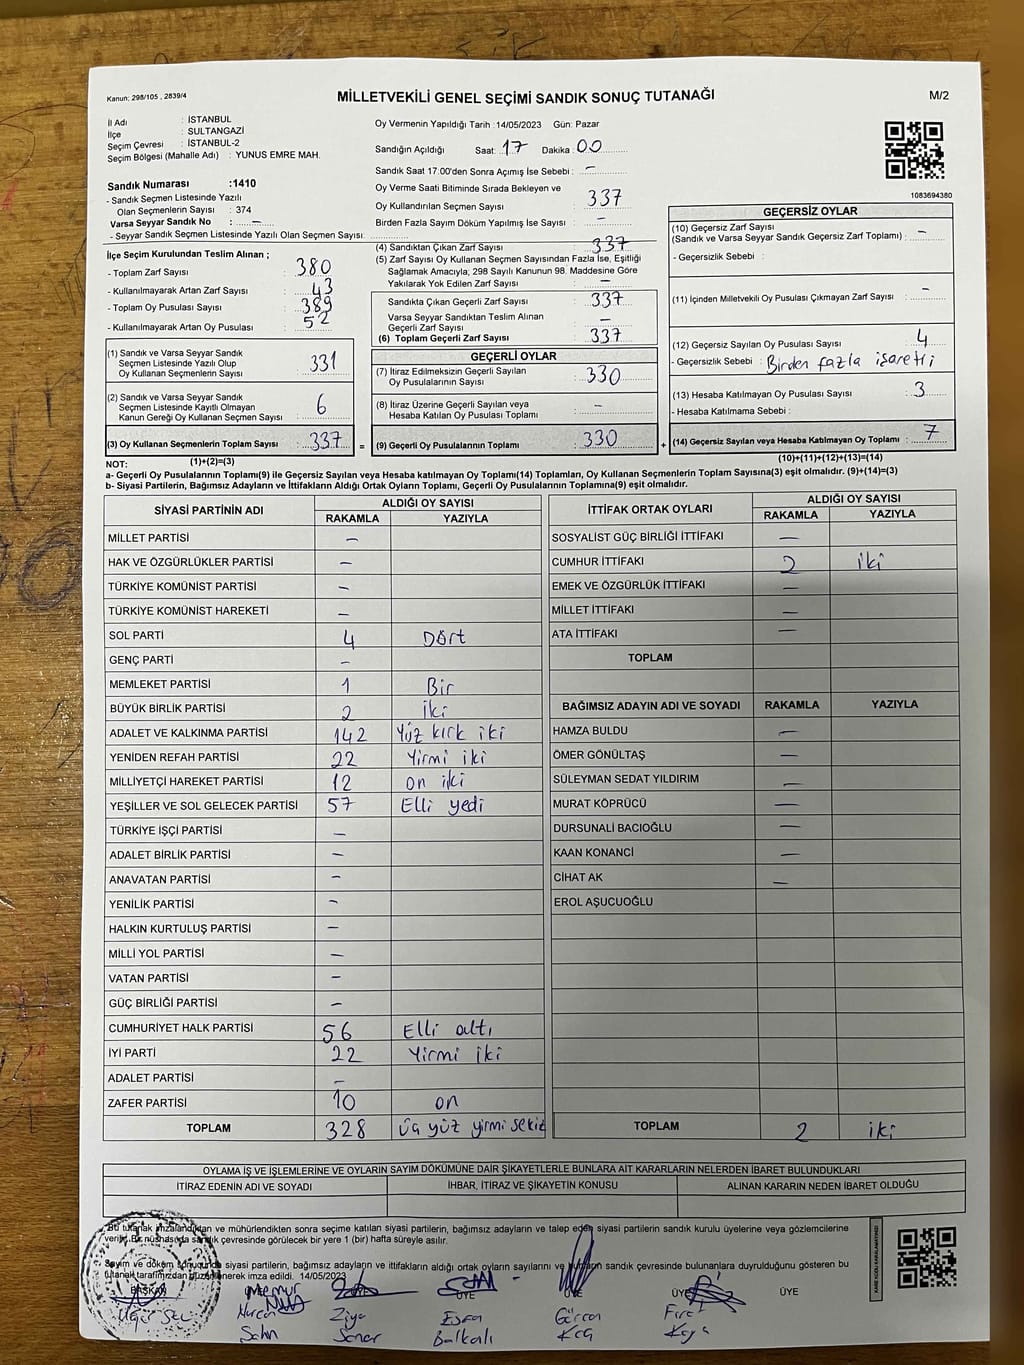 Kanun: 298/105 , 2839/4
MİLLETVEKİLİ GENEL SEÇİMİ SANDIK SONUÇ TUTANAĞI
M/2
İl Adı : İSTANBUL
İlçe : SULTANGAZİ
Seçim Çevresi : İSTANBUL-2
Seçim Bölgesi (Mahalle Adı) : YUNUS EMRE MAH.
Sandık Numarası :1410
- Sandık Seçmen Listesinde Yazılı
Olan Seçmenlerin Sayısı : 374
Varsa Seyyar Sandık No : –
- Seyyar Sandık Seçmen Listesinde Yazılı Olan Seçmen Sayısı:
İlçe Seçim Kurulundan Teslim Alınan ;
- Toplam Zarf Sayısı : 380
- Kullanılmayarak Artan Zarf Sayısı : 43
- Toplam Oy Pusulası Sayısı : 389
- Kullanılmayarak Artan Oy Pusulası : 52
(1) Sandık ve Varsa Seyyar Sandık
Seçmen Listesinde Yazılı Olup
Oy Kullanan Seçmenlerin Sayısı : 331
(2) Sandık ve Varsa Seyyar Sandık
Seçmen Listesinde Kayıtlı Olmayan
Kanun Gereği Oy Kullanan Seçmen Sayısı : 6
(3) Oy Kullanan Seçmenlerin Toplam Sayısı : 337
(1)+(2)=(3)
Oy Vermenin Yapıldığı Tarih :14/05/2023 Gün: Pazar
Sandığın Açıldığı Saat: 17 Dakika : 00
Sandık Saat 17:00'den Sonra Açımış İse Sebebi : –
Oy Verme Saati Bitiminde Sırada Bekleyen ve
Oy Kullandırılan Seçmen Sayısı : 337
Birden Fazla Sayım Döküm Yapılmış İse Sayısı : –
(4) Sandıktan Çıkan Zarf Sayısı : 337
(5) Zarf Sayısı Oy Kullanan Seçmen Sayısından Fazla İse, Eşitliği
Sağlamak Amacıyla; 298 Sayılı Kanunun 98. Maddesine Göre
Yakılarak Yok Edilen Zarf Sayısı : –
Sandıkta Çıkan Geçerli Zarf Sayısı : 337
Varsa Seyyar Sandıktan Teslim Alınan
Geçerli Zarf Sayısı : –
(6) Toplam Geçerli Zarf Sayısı : 337
GEÇERLİ OYLAR
(7) İtiraz Edilmeksizin Geçerli Sayılan
Oy Pusulalarının Sayısı : 330
(8) İtiraz Üzerine Geçerli Sayılan veya
Hesaba Katılan Oy Pusulası Toplamı : –
= (9) Geçerli Oy Pusulalarının Toplamı : 330
1083694380
GEÇERSİZ OYLAR
(10) Geçersiz Zarf Sayısı
(Sandık ve Varsa Seyyar Sandık Geçersiz Zarf Toplamı) : –
- Geçersizlik Sebebi :
(11) İçinden Milletvekili Oy Pusulası Çıkmayan Zarf Sayısı : –
(12) Geçersiz Sayılan Oy Pusulası Sayısı : 4
- Geçersizlik Sebebi : Birden fazla işaretli
(13) Hesaba Katılmayan Oy Pusulası Sayısı : 3
- Hesaba Katılmama Sebebi :
+ (14) Geçersiz Sayılan veya Hesaba Katılmayan Oy Toplamı : 7
(10)+(11)+(12)+(13)=(14)
NOT:
a- Geçerli Oy Pusulalarının Toplamı(9) ile Geçersiz Sayılan veya Hesaba katılmayan Oy Toplamı(14) Toplamları, Oy Kullanan Seçmenlerin Toplam Sayısına(3) eşit olmalıdır. (9)+(14)=(3)
b- Siyasi Partilerin, Bağımsız Adayların ve İttifakların Aldığı Ortak Oyların Toplamı, Geçerli Oy Pusulalarının Toplamına(9) eşit olmalıdır.
SİYASİ PARTİNİN ADI ALDIĞI OY SAYISI
RAKAMLA YAZIYLA
MİLLET PARTİSİ –
HAK VE ÖZGÜRLÜKLER PARTİSİ –
TÜRKİYE KOMÜNİST PARTİSİ –
TÜRKİYE KOMÜNİST HAREKETİ –
SOL PARTİ 4 Dört
GENÇ PARTİ –
MEMLEKET PARTİSİ 1 Bir
BÜYÜK BİRLİK PARTİSİ 2 iki
ADALET VE KALKINMA PARTİSİ 142 Yüz kırk iki
YENİDEN REFAH PARTİSİ 22 Yirmi iki
MİLLİYETÇİ HAREKET PARTİSİ 12 on iki
YEŞİLLER VE SOL GELECEK PARTİSİ 57 Elli yedi
TÜRKİYE İŞÇİ PARTİSİ –
ADALET BİRLİK PARTİSİ –
ANAVATAN PARTİSİ –
YENİLİK PARTİSİ –
HALKIN KURTULUŞ PARTİSİ –
MİLLİ YOL PARTİSİ –
VATAN PARTİSİ –
GÜÇ BİRLİĞİ PARTİSİ –
CUMHURİYET HALK PARTİSİ 56 Elli altı
İYİ PARTİ 22 Yirmi iki
ADALET PARTİSİ –
ZAFER PARTİSİ 10 on
TOPLAM 328 üç yüz yirmi sekiz
İTTİFAK ORTAK OYLARI ALDIĞI OY SAYISI
RAKAMLA YAZIYLA
SOSYALİST GÜÇ BİRLİĞİ İTTİFAKI –
CUMHUR İTTİFAKI 2 iki
EMEK VE ÖZGÜRLÜK İTTİFAKI –
MİLLET İTTİFAKI –
ATA İTTİFAKI –
TOPLAM
BAĞIMSIZ ADAYIN ADI VE SOYADI RAKAMLA YAZIYLA
HAMZA BULDU –
ÖMER GÖNÜLTAŞ –
SÜLEYMAN SEDAT YILDIRIM –
MURAT KÖPRÜCÜ –
DURSUNALİ BACIOĞLU –
KAAN KONANCİ –
CİHAT AK –
EROL AŞUCUOĞLU
TOPLAM 2 iki
OYLAMA İŞ VE İŞLEMLERİNE VE OYLARIN SAYIM DÖKÜMÜNE DAİR ŞİKAYETLERLE BUNLARA AİT KARARLARIN NELERDEN İBARET BULUNDUKLARI
İTİRAZ EDENİN ADI VE SOYADI İHBAR, İTİRAZ VE ŞİKAYETİN KONUSU ALINAN KARARIN NEDEN İBARET OLDUĞU
Bu tutanak imzalandıktan ve mühürlendikten sonra seçime katılan siyasi partilerin, bağımsız adayların ve talep eden siyasi partilerin sandık kurulu üyelerine veya gözlemcilerine
verilir. Bir nüshası da sandık çevresinde görülecek bir yere 1 (bir) hafta süreyle asılır.
Sayım ve döküm sonucunda siyasi partilerin, bağımsız adayların ve ittifakların aldığı ortak oyların sayılarını ve sandık çevresinde bulunanlara duyrulduğunu gösteren bu
tutanak tarafımızdan düzenlenerek imza edildi. 14/05/2023
BAŞKAN ÜYE ÜYE ÜYE ÜYE
Ziya Esra Fırat
Şahin Balkalı Kaya
KARE KODU KARALAMAYINIZ!